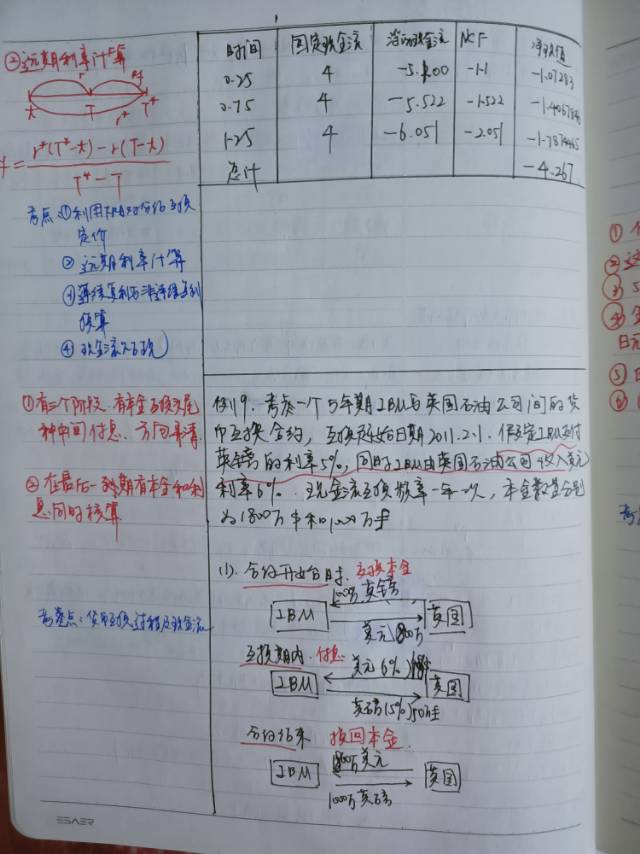 ②远期利率计算
r
r4
t
T
T*
r*
r*(T*-t)-r(T-t)
T*-T
考点:①利用FRA对价给互换
定价
②远期利率计算
③连续复利与非连续复利
换算
④现金流不确
时间 固定现金流 浮动现金流 NCF 净现值
0.25 4 -5.100 -1.1 -1.07283
0.75 4 -5.522 -1.522
1.25 4 -6.051 -2.051
总计 -4.267
①有三个阶段,有本金互换头尾
种中间付息,方向弄清
②在最后一到期有本金和利
息同时核算
考亮点:货币互换过程及现金流
例19.考虑一个5年期IBM与英国石油公司间的货
币互换合约,互换开始日期2011.2.1.假定IBM支付
英镑的利率5%,同时IBM由英国石油公司收入美元
利率6%.现金流互换频率一年一次,本金数量分别
为1800万$和1000万£
(1).合约开始日时,互换本金
1000万英镑
IBM
英国
美元1800万
互换期内,付息
美元6%
IBM
英国
英镑(5%)50万£
合约结束 换回本金
1800万美元
IBM
英国
1000万英镑
EBAER
①
②
③
④
日元
⑤
⑥